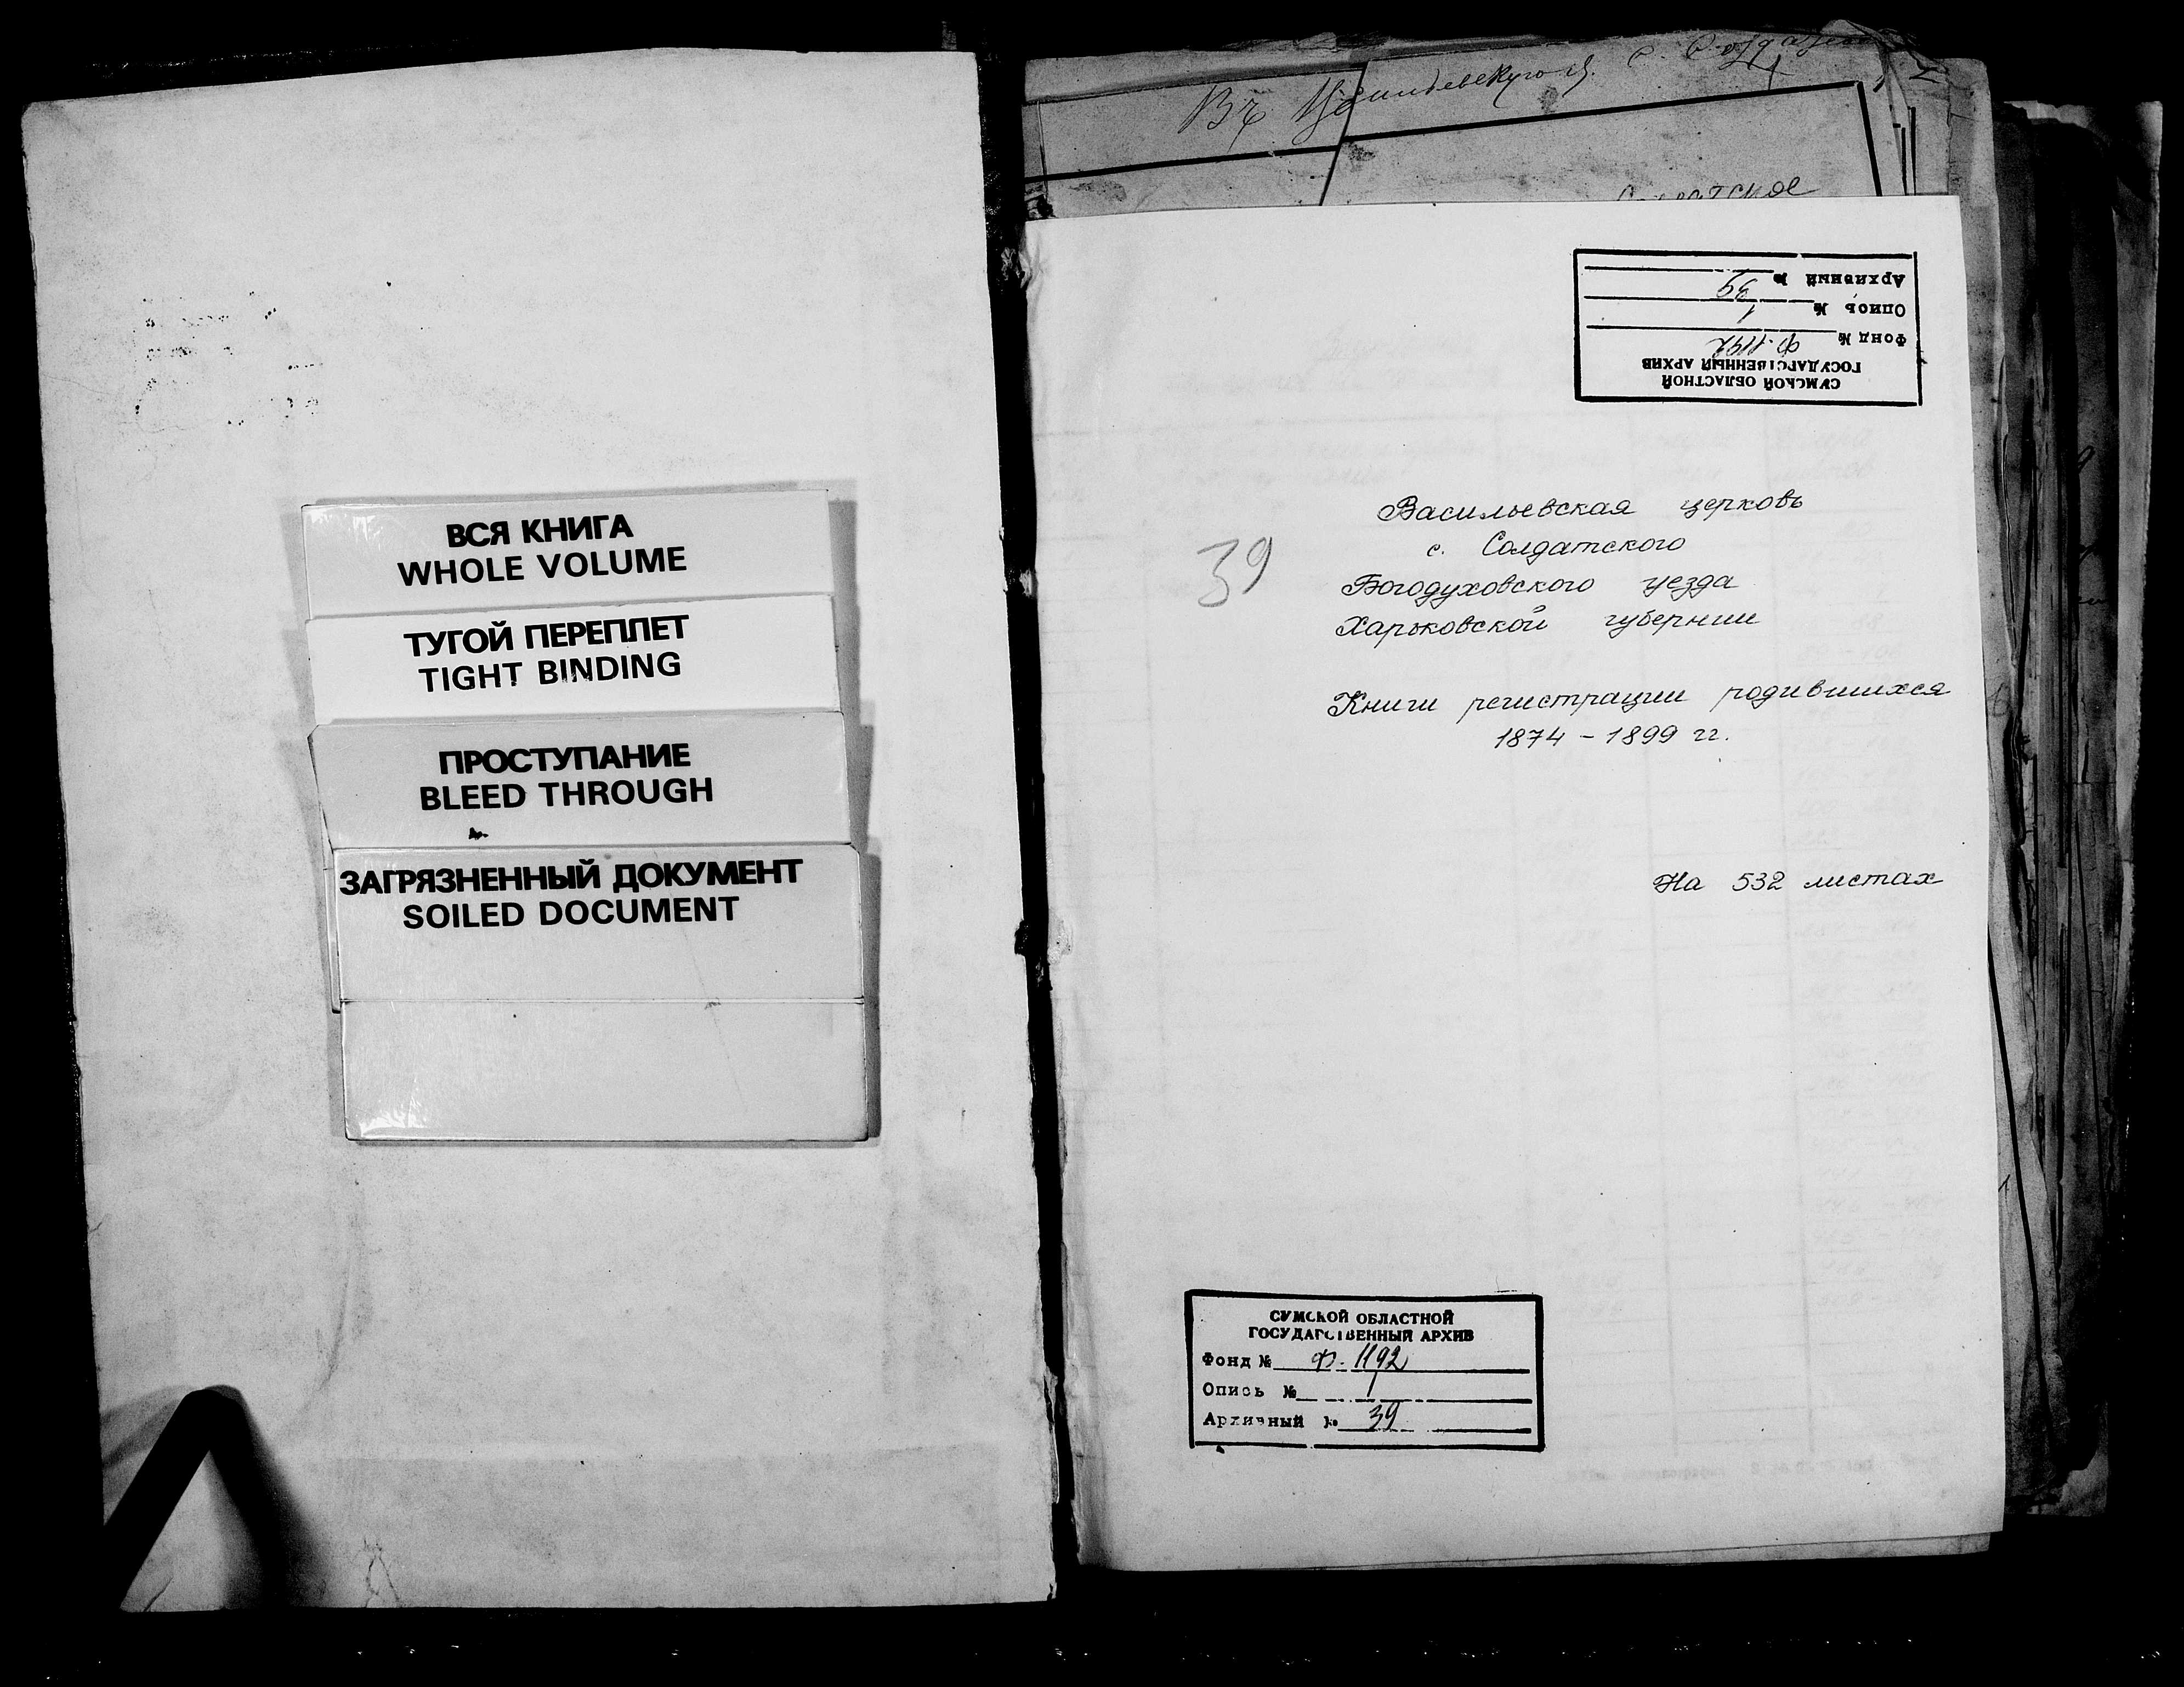 ВСЯ КНИГА
WHOLE VOLUME
ТУГОЙ ПЕРЕПЛЕТ
TIGHT BINDING
ПРОСТУПАНИЕ
BLEED THROUGH
ЗАГРЯЗНЕННЫЙ ДОКУМЕНТ
SOILED DOCUMENT
Въ с.
СУМСКОЙ ОБЛАСТНОЙ
ГОСУДАРСТВЕННЫЙ АРХИВ
Фонд № Ф. 1192
Опись № 1
Архивный № 39
39
Васильевская церковь
с. Солдатского
Богодуховского уезда
Харьковской губернии
Книги регистрации родившихся
1874 - 1899 гг.
На 532 листах
СУМСКОЙ ОБЛАСТНОЙ
ГОСУДАРСТВЕННЫЙ АРХИВ
Фонд № Ф. 1192
Опись № 1
Архивный № 39